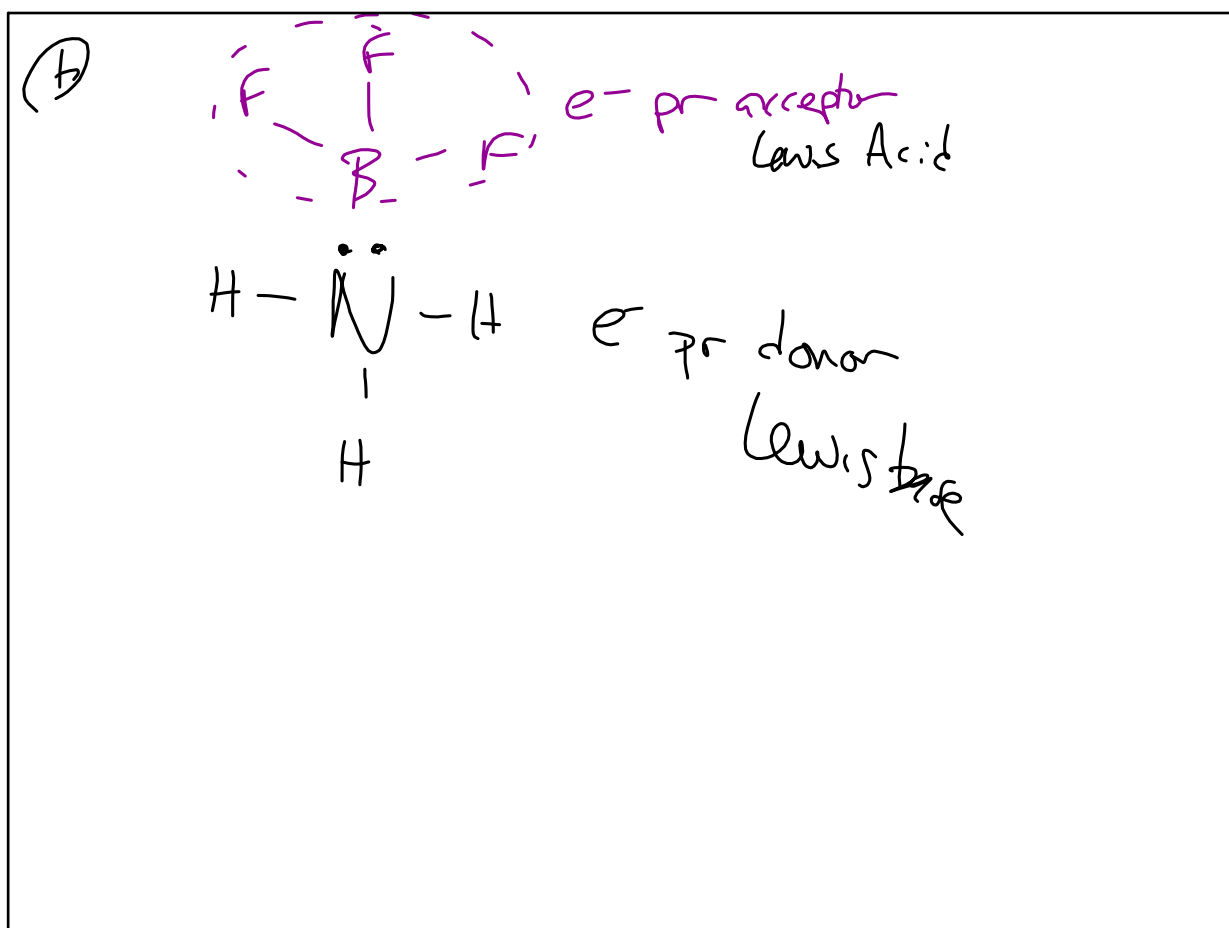 b
F
F
e⁻ pr acceptor
B – F
Lewis Acid
H – N – H
e⁻ pr donor
H
Lewis base